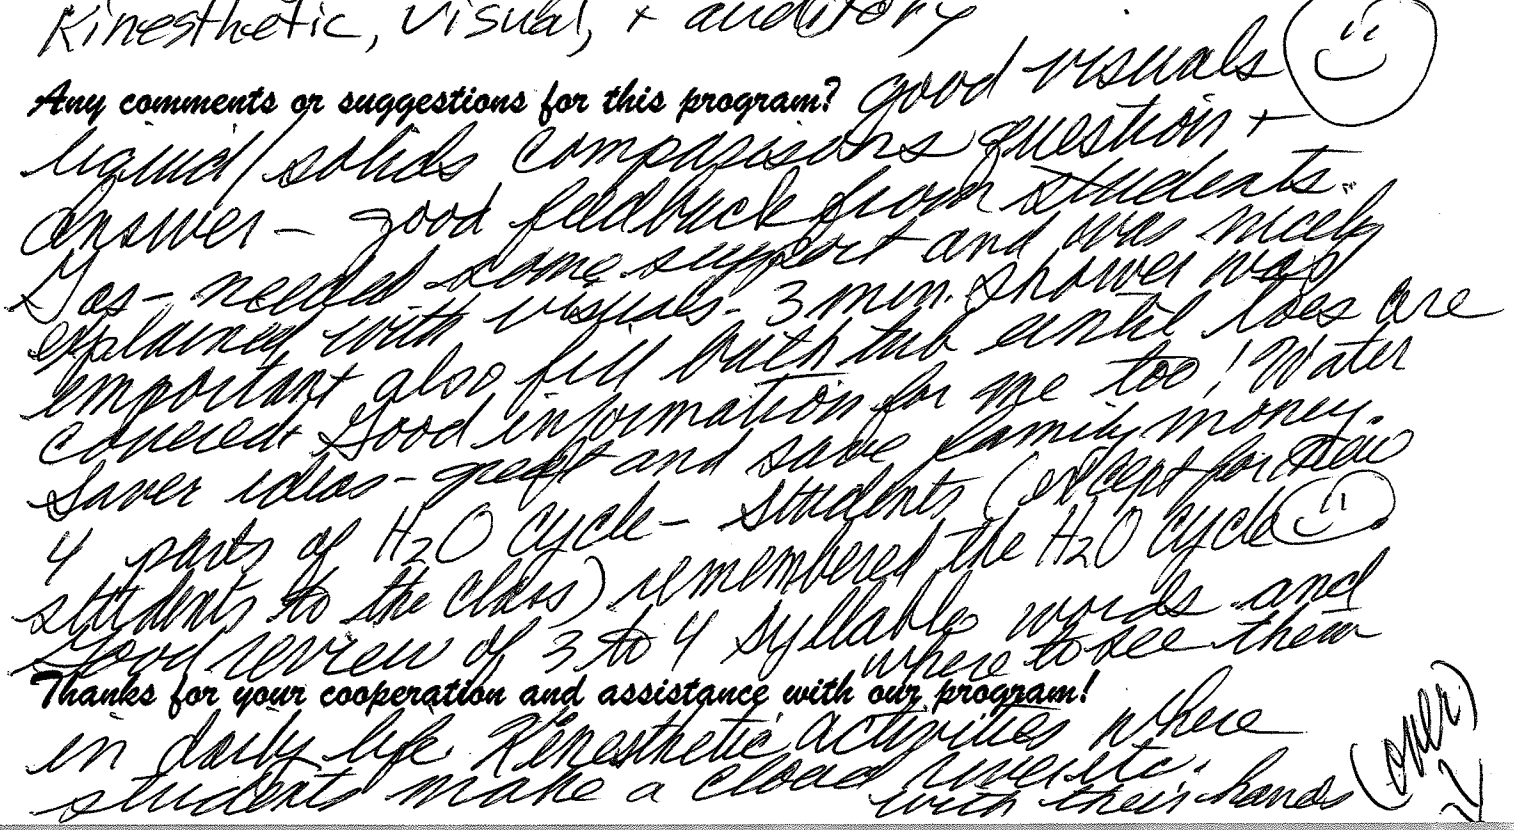 Kinesthetic, visual, + auditory
Any comments or suggestions for this program? good visuals
liquid/solids comparisons question +
answer - good feedback from students.
Gas - needed some support and was nicely
explained with visuals - 3 min. shower was
important also fill bath tub until toes are
covered. Good information for me too! Water
saver ideas - great and save family money.
4 parts of H2O cycle - students (except for new
students to the class) remembered the H2O cycle
Good review of 3 to 4 syllable words and
where to see them
Thanks for your cooperation and assistance with our program!
in daily life. Kinesthetic activities where
students make a cloud river etc.
with their hands
(over)